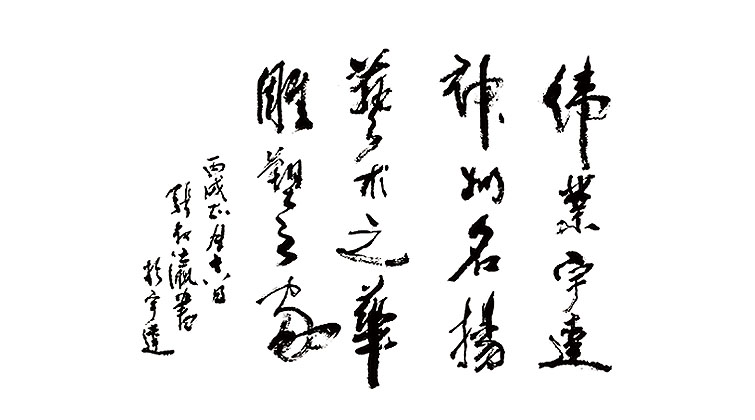 緯業宇達
神州名揚
藝术之華
雕塑之家
丙戌正月十八日
張瀛書
於宇達